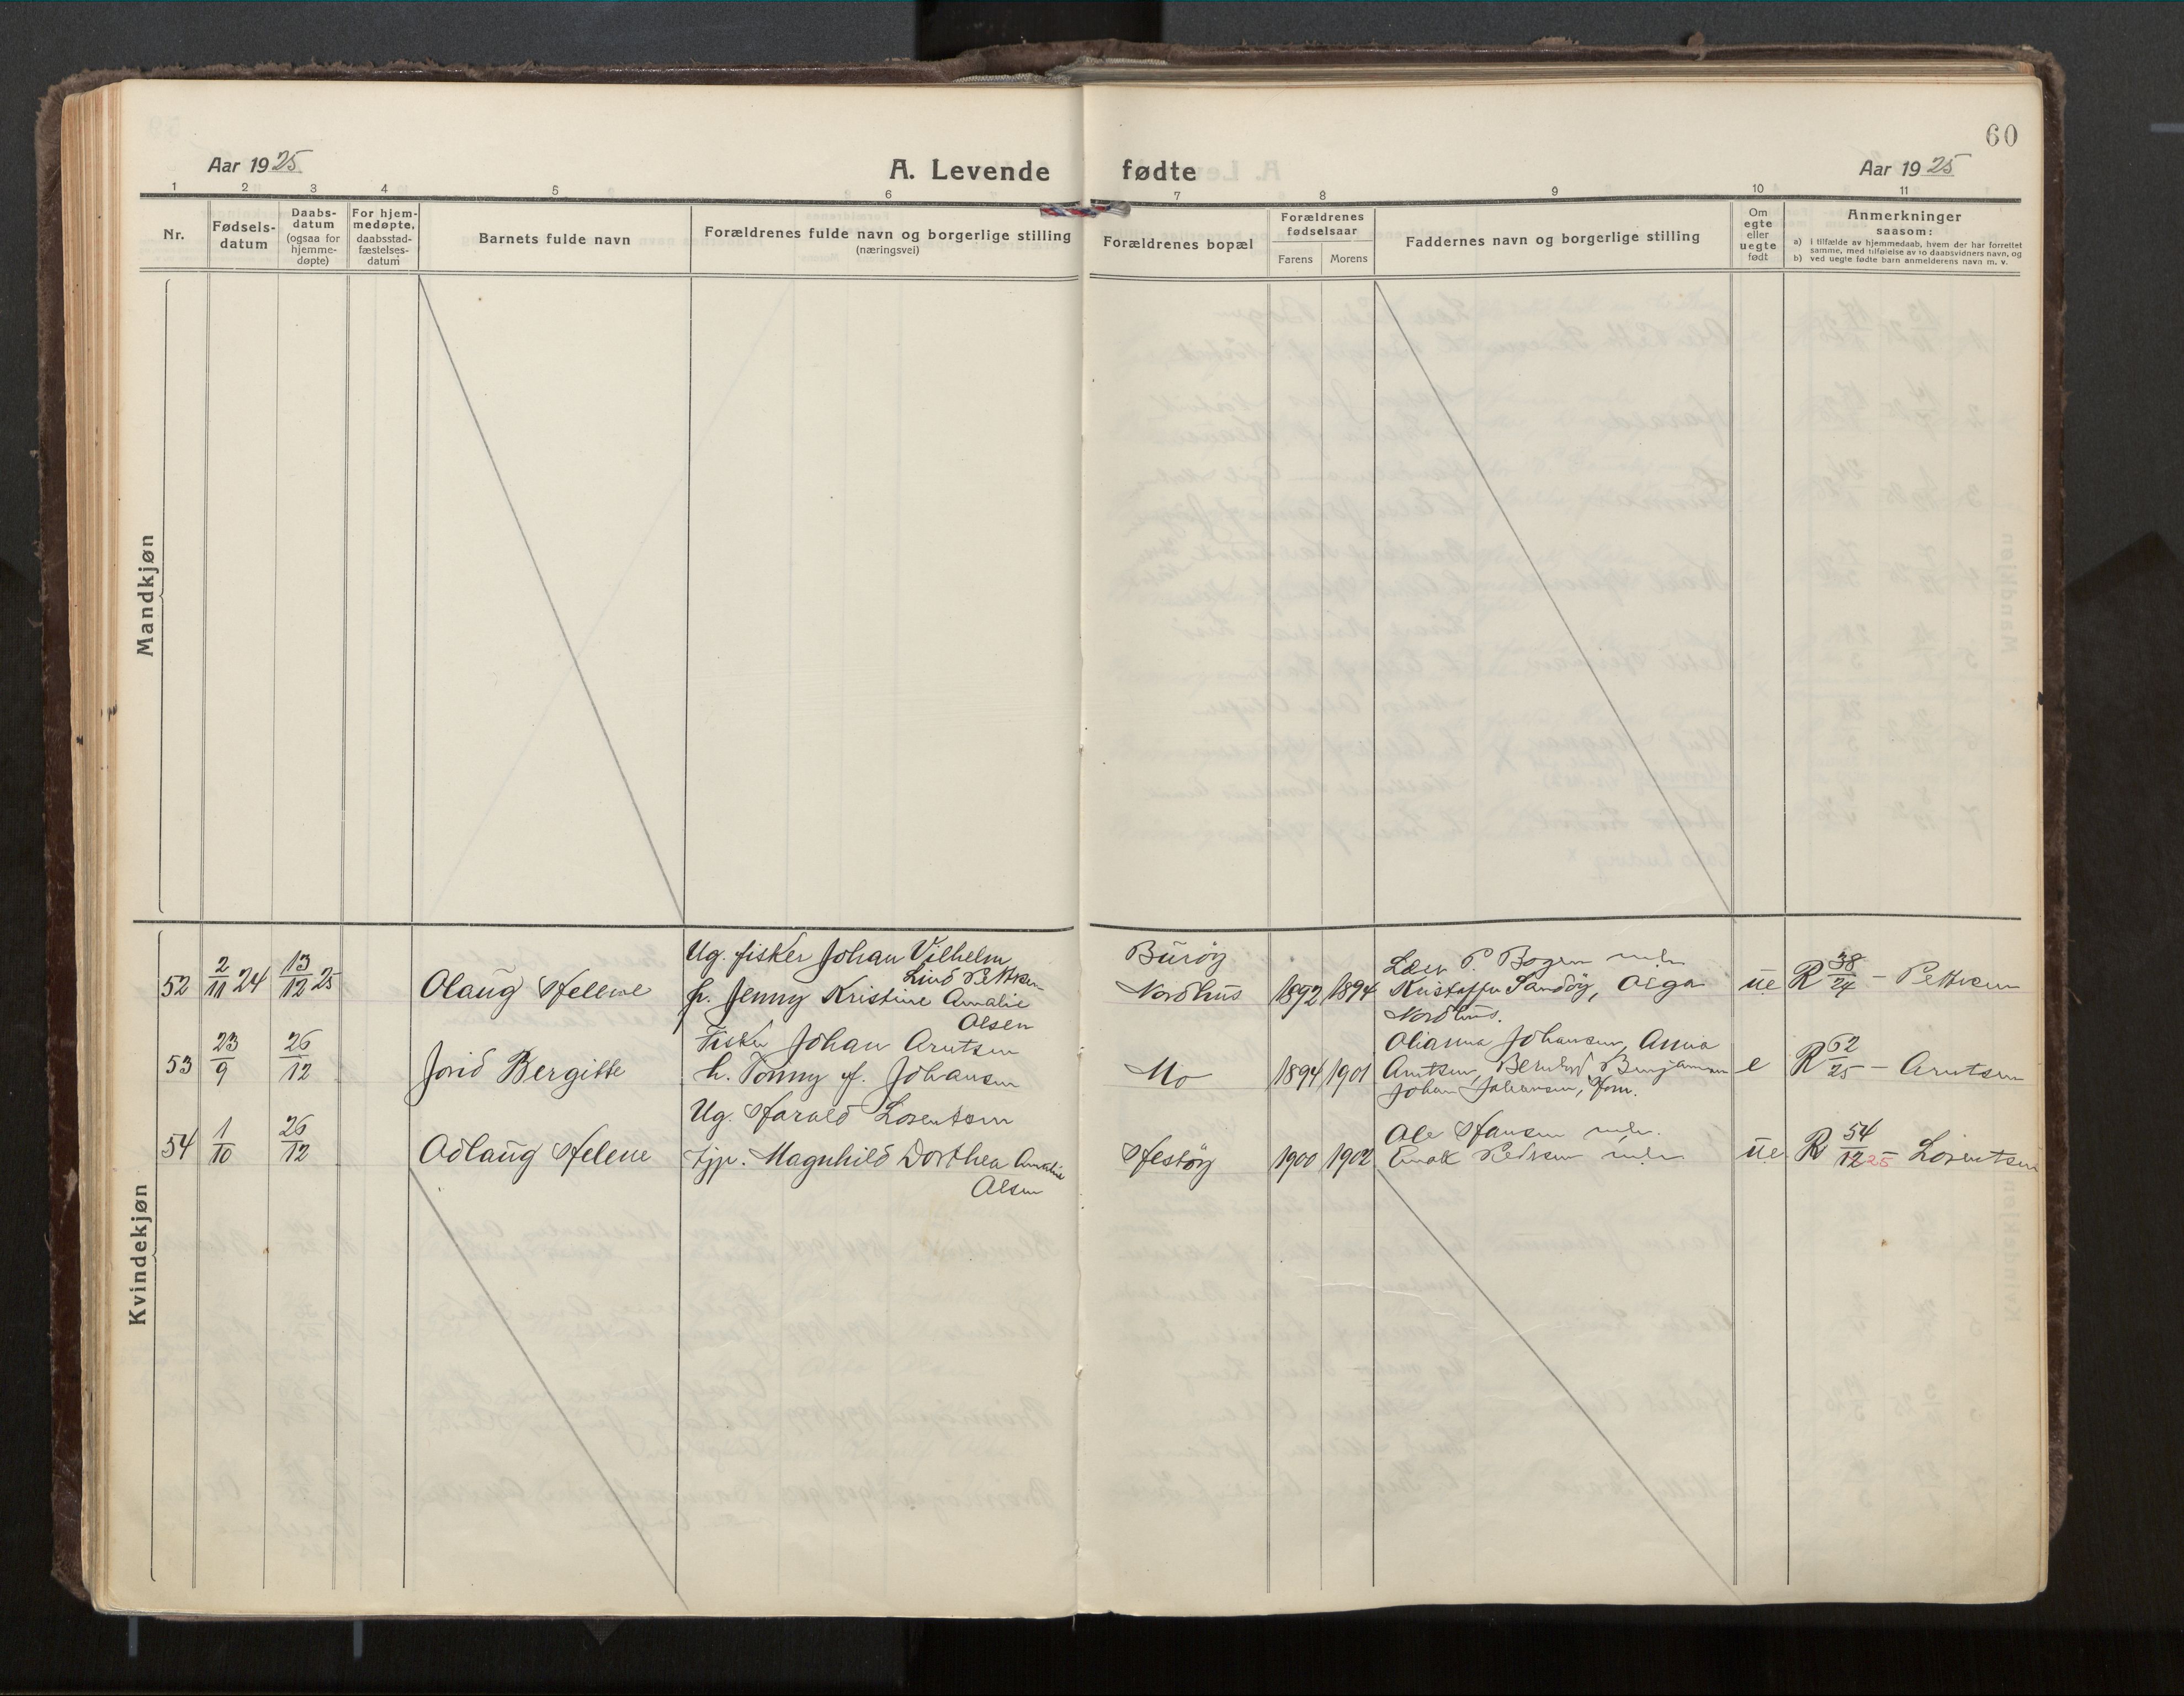 60
Aar 1925
A. Levende fødte
Aar 1925
1 2 3 4 5 6 7 8 9 10 11
Nr.
Fødsels-
datum
Daabs-
datum
(ogsaa for
hjemme-
døpte)
For hjem-
medøpte,
daabsstad-
fæstelses-
datum
Barnets fulde navn
Forældrenes fulde navn og borgerlige stilling
(næringsvei)
Forældrenes bopæl
Forældrenes
fødselsaar
Farens Morens
Faddernes navn og borgerlige stilling
Om
egte
eller
uegte
født
Anmerkninger
saasom:
a) i tilfælde av hjemmedaab, hvem der har forrettet
samme, med tilføielse av to daabsvidners navn, og
b) ved uegte fødte barn anmelderens navn m. v.
Mandkjøn
Kvindekjøn
52 2/11 24 13/12 25 Olaug Helene
Ug. fisker Johan Vilhelm
Lind Pettersen
p. Jenny Kristine Amalie
Olsen
Burøy
Nordhus 1892 1894
Lær P. Bogen
Kristoffer Sandøy, Olga
Nordhus.
ue R 38/24 - Pettersen
53 23/9 26/12 Jorid Bergitte
Fisker Johan Arntsen
h. Tonny f. Johansen
Mo 1894 1901
Olianna Johansen, Anna
Arntsen, Benjaminsen
Johan Johansen,
e R 62/25 - Arntsen
54 1/10 26/12 Odlaug Helene
Ug. Harald Lorentsen
tjp. Magnhild Dorthea Amalie
Olsen
Hestøy 1900 1902
Ole Hansen
Enok Pedersen
ue R 54/12 25 - Lorentsen